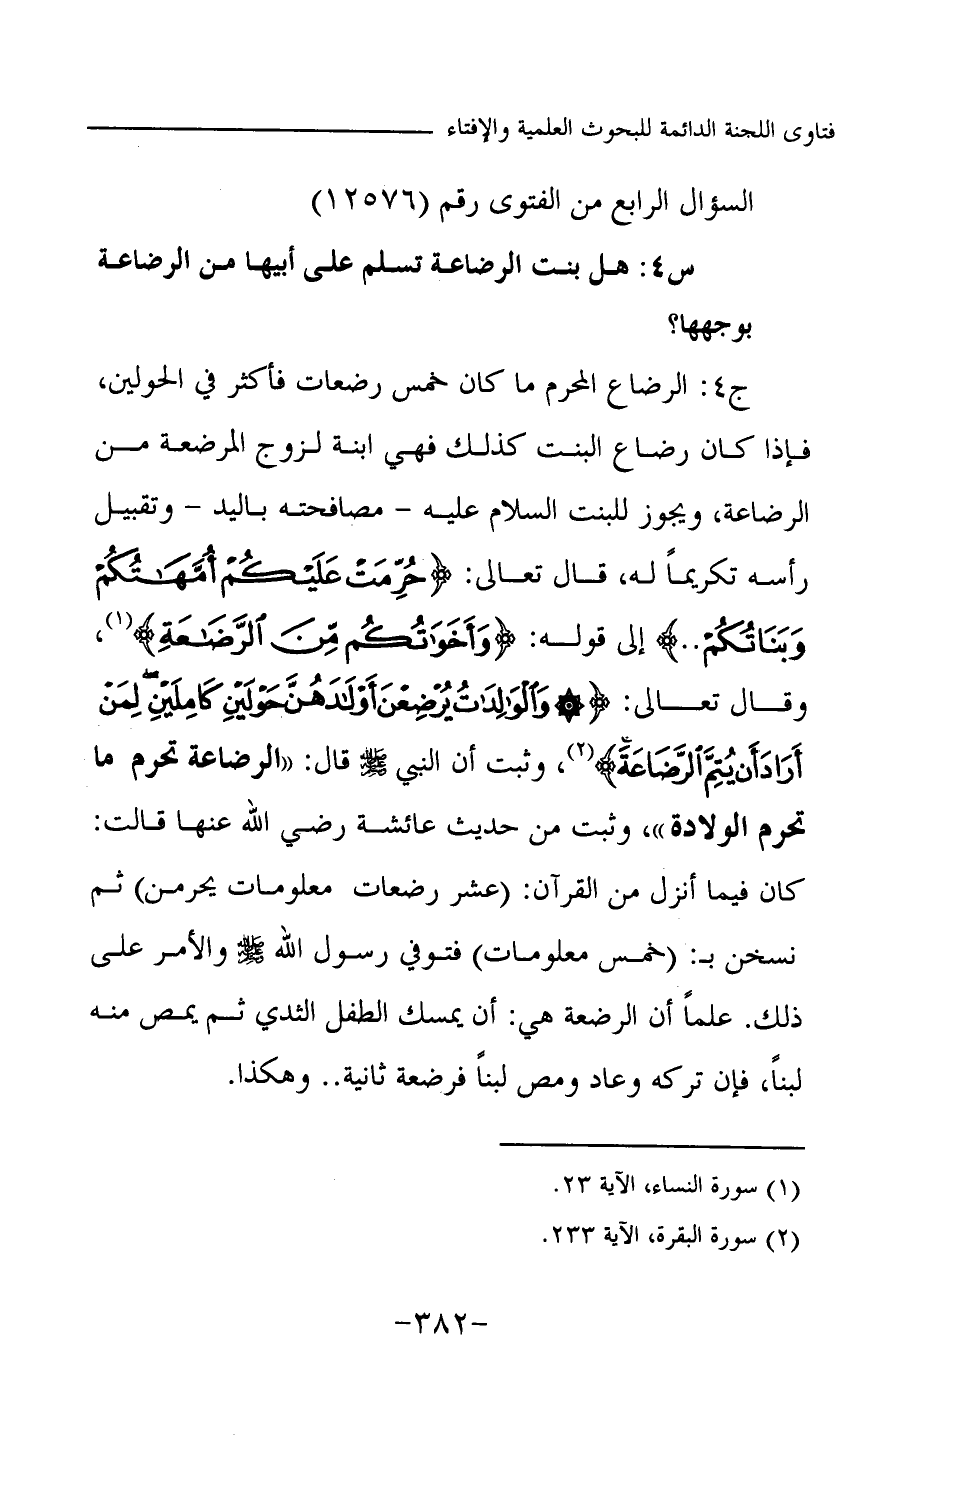 فتاوى اللجنة الدائمة للبحوث العلمية والإفتاء
السؤال الرابع من الفتوى رقم (١٢٥٧٦)
س٤: هل بنت الرضاعة تسلم على أبيها من الرضاعة
بوجهها؟
ج٤: الرضاع المحرم ما كان خمس رضعات فأكثر في الحولين،
فإذا كان رضاع البنت كذلك فهي ابنة لزوج المرضعة من
الرضاعة، ويجوز للبنت السلام عليه - مصافحته باليد - وتقبيل
رأسه تكريماً له، قال تعالى: ﴿حُرِّمَتْ عَلَيْكُمْ أُمَّهَٰتُكُمْ
وَبَنَاتُكُمْ..﴾ إلى قوله: ﴿وَأَخَوَٰتُكُم مِّنَ ٱلرَّضَٰعَةِ﴾(١)،
وقال تعالى: ﴿۞ وَٱلْوَٰلِدَٰتُ يُرْضِعْنَ أَوْلَٰدَهُنَّ حَوْلَيْنِ كَامِلَيْنِ ۖ لِمَنْ
أَرَادَ أَن يُتِمَّ ٱلرَّضَاعَةَ ۚ﴾(٢)، وثبت أن النبي ﷺ قال: «الرضاعة تحرم ما
تحرم الولادة»، وثبت من حديث عائشة رضي الله عنها قالت:
كان فيما أنزل من القرآن: (عشر رضعات معلومات يحرمن) ثم
نسخن بـ: (خمس معلومات) فتوفي رسول الله ﷺ والأمر على
ذلك. علماً أن الرضعة هي: أن يمسك الطفل الثدي ثم يمص منه
لبناً، فإن تركه وعاد ومص لبناً فرضعة ثانية.. وهكذا.
(١) سورة النساء، الآية ٢٣.
(٢) سورة البقرة، الآية ٢٣٣.
-٣٨٢-